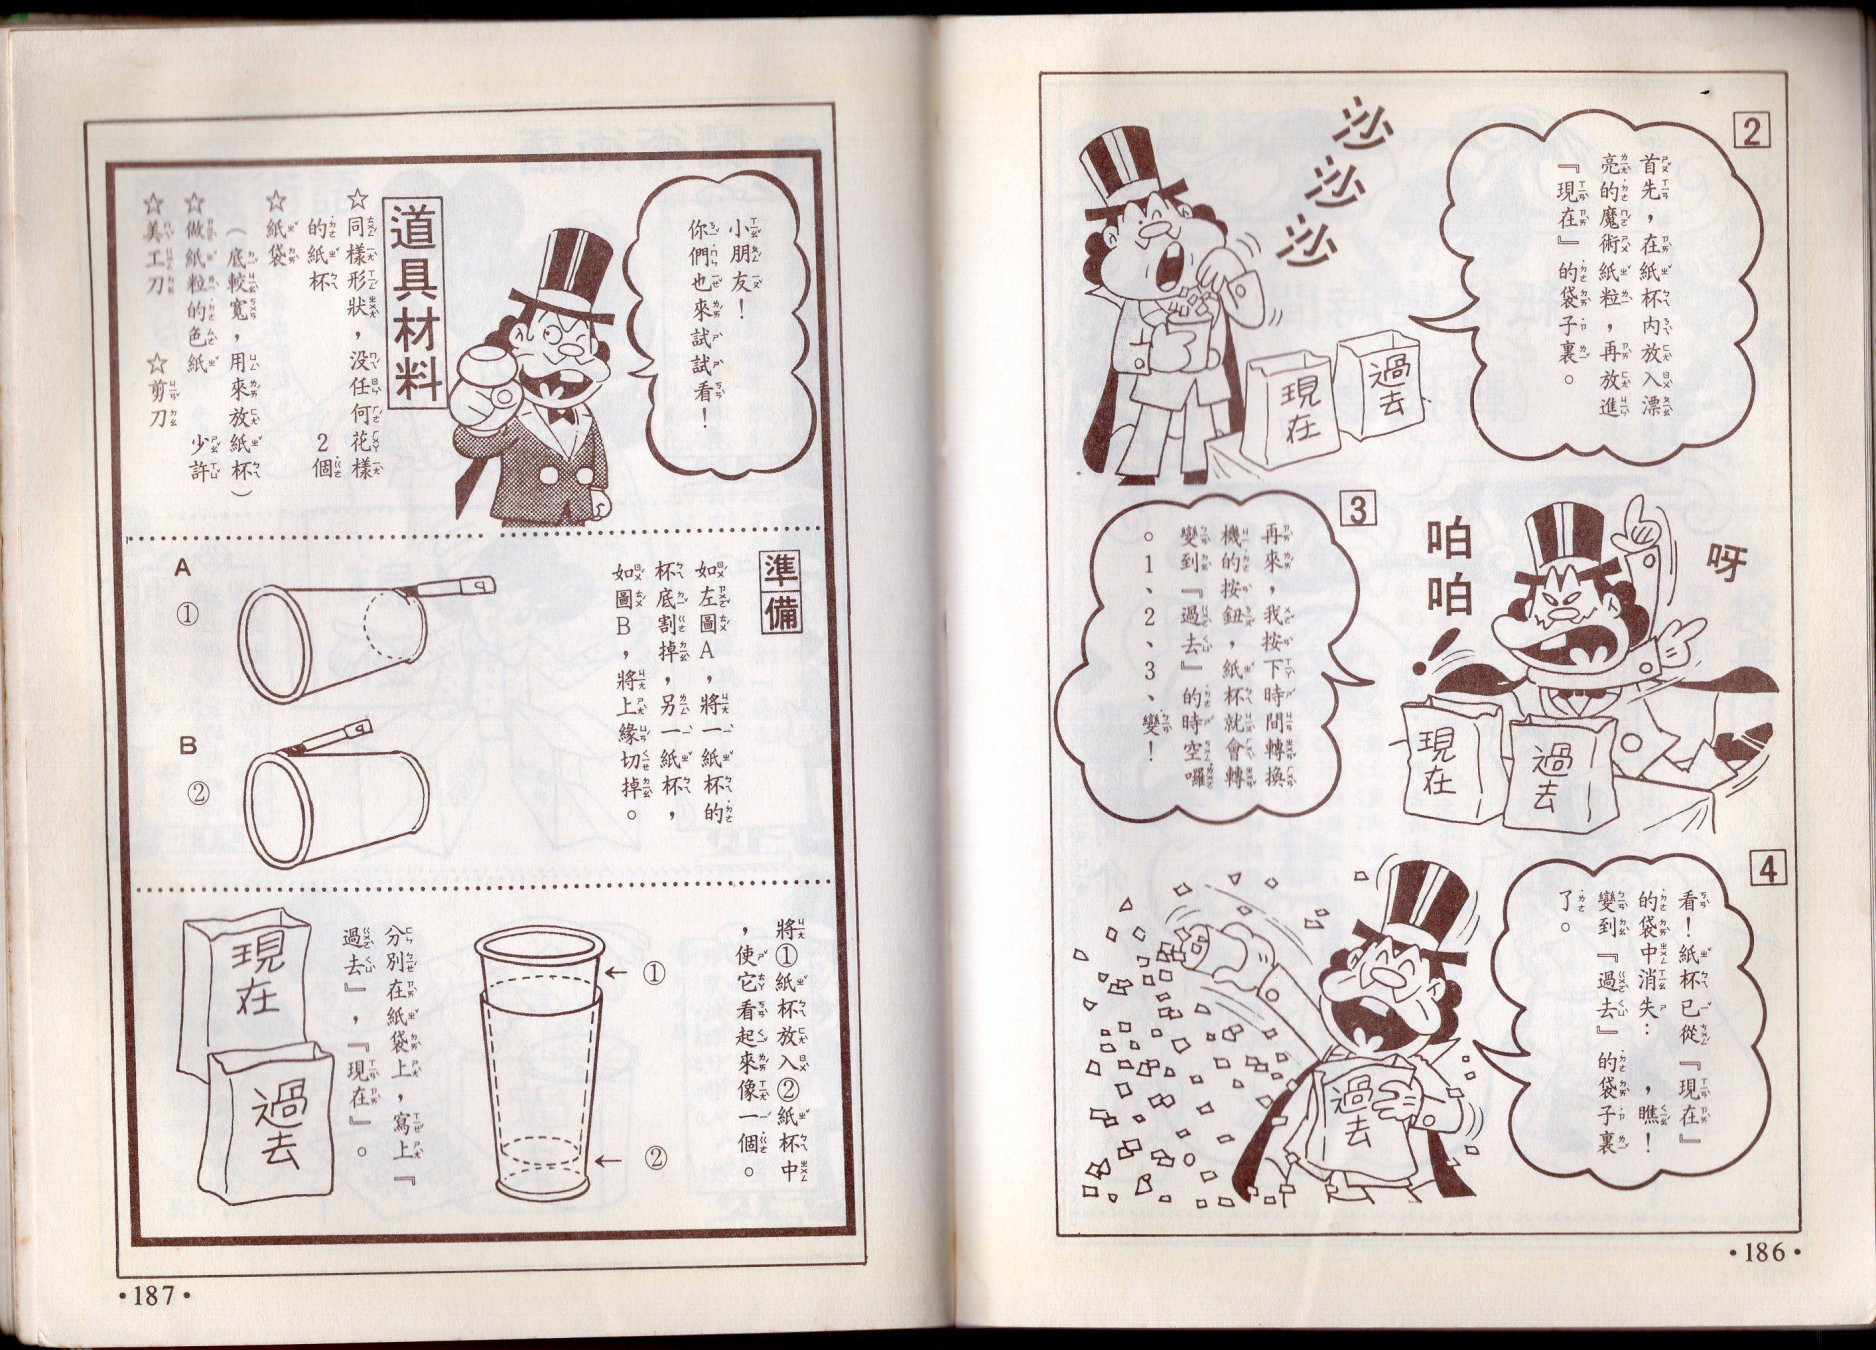 2
首先，在紙杯內放入漂
亮的魔術紙粒，再放進
『現在』的袋子裏。
沙沙沙
過去
現在
3
再來，我按下時間轉換
機的按鈕，紙杯就會轉
變到『過去』的時空囉
。1、2、3、變！
呀
咱咱！
現在
過去
4
看！紙杯已從『現在』
的袋中消失…，瞧！
變到『過去』的袋子裏
了。
過去
·186·
小朋友！
你們也來試試看！
道具材料
☆同樣形狀，没任何花樣
的紙杯 2個
☆紙袋
（底較寬，用來放紙杯）
☆做紙粒的色紙 少許
☆美工刀 ☆剪刀
準備
如左圖A，將一紙杯的
杯底割掉，另一紙杯，
如圖B，將上緣切掉。
A
①
B
②
將①紙杯放入②紙杯中
，使它看起來像一個。
①
②
分別在紙袋上，寫上『
過去』，『現在』。
現在
過去
·187·